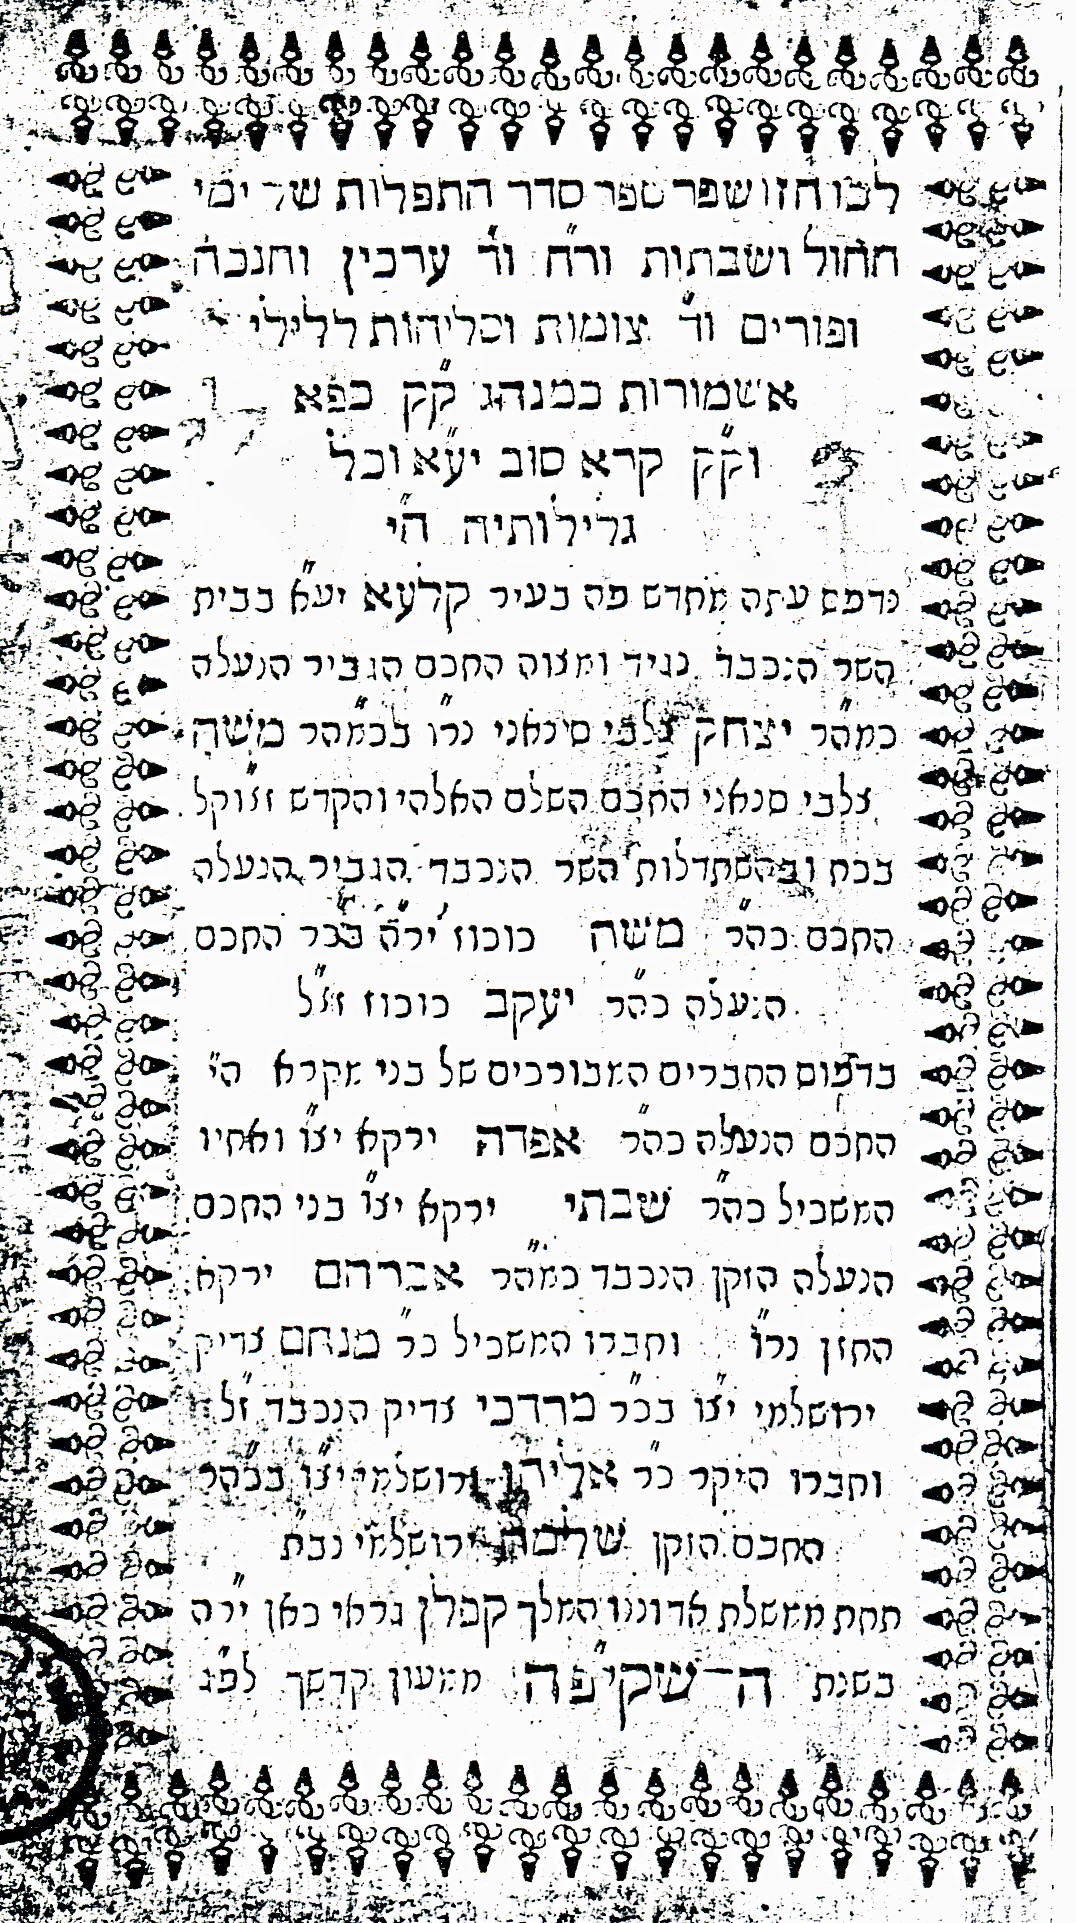 לכו חזו שפר ספר סדר התפלות של ימי
החול ושבתות ור״ח וד׳ ערכין וחנכה
ופורים וד׳ צומות וסליחות ללילי
אשמורות כמנהג ק״ק כפא
וק״ק קרא סוב יע״א וכל
גלילותיה ה״י
נדפס עתה מחדש פה בעיר קלעא יע״א בבית
השר הנכבד נגיד ומצוה החכם הגביר הנעלה
כמה״ר יצחק צלבי סינאני נר״ו בכמה״ר משה
צלבי סנאני החכם השלם האלהי והקדש זצוק״ל
בכח ובהשתדלות השר הנכבד הגביר הנעלה
החכם כה״ר משה כוכוז יר״ה בכ״ר החכם
הנעלה כה״ר יעקב כוכוז ז״ל
בדפוס החברים המבורכים של בני מקרא ה״י
החכם הנעלה כה״ר אפדה ירקא יצ״ו ואחיו
המשכיל כה״ר שבתי ירקא יצ״ו בני החכם
הנעלה הזקן הנכבד כמה״ר אברהם ירקא
החזן נר״ו וחברו המשכיל כ״ר מנחם צדיק
ירושלמי יצ״ו בכ״ר מרדכי צדיק הנכבד ז״ל
וחברו היקר כ״ר אליהו ירושלמי יצ״ו בכה״ר
החכם הזקן שלמה ירושלמי נב״ת
תחת ממשלת אדוננו המלך קפלן גראי כאן יר״ה
בשנת ה־שקי״פה ממעון קדשך לפ״ג